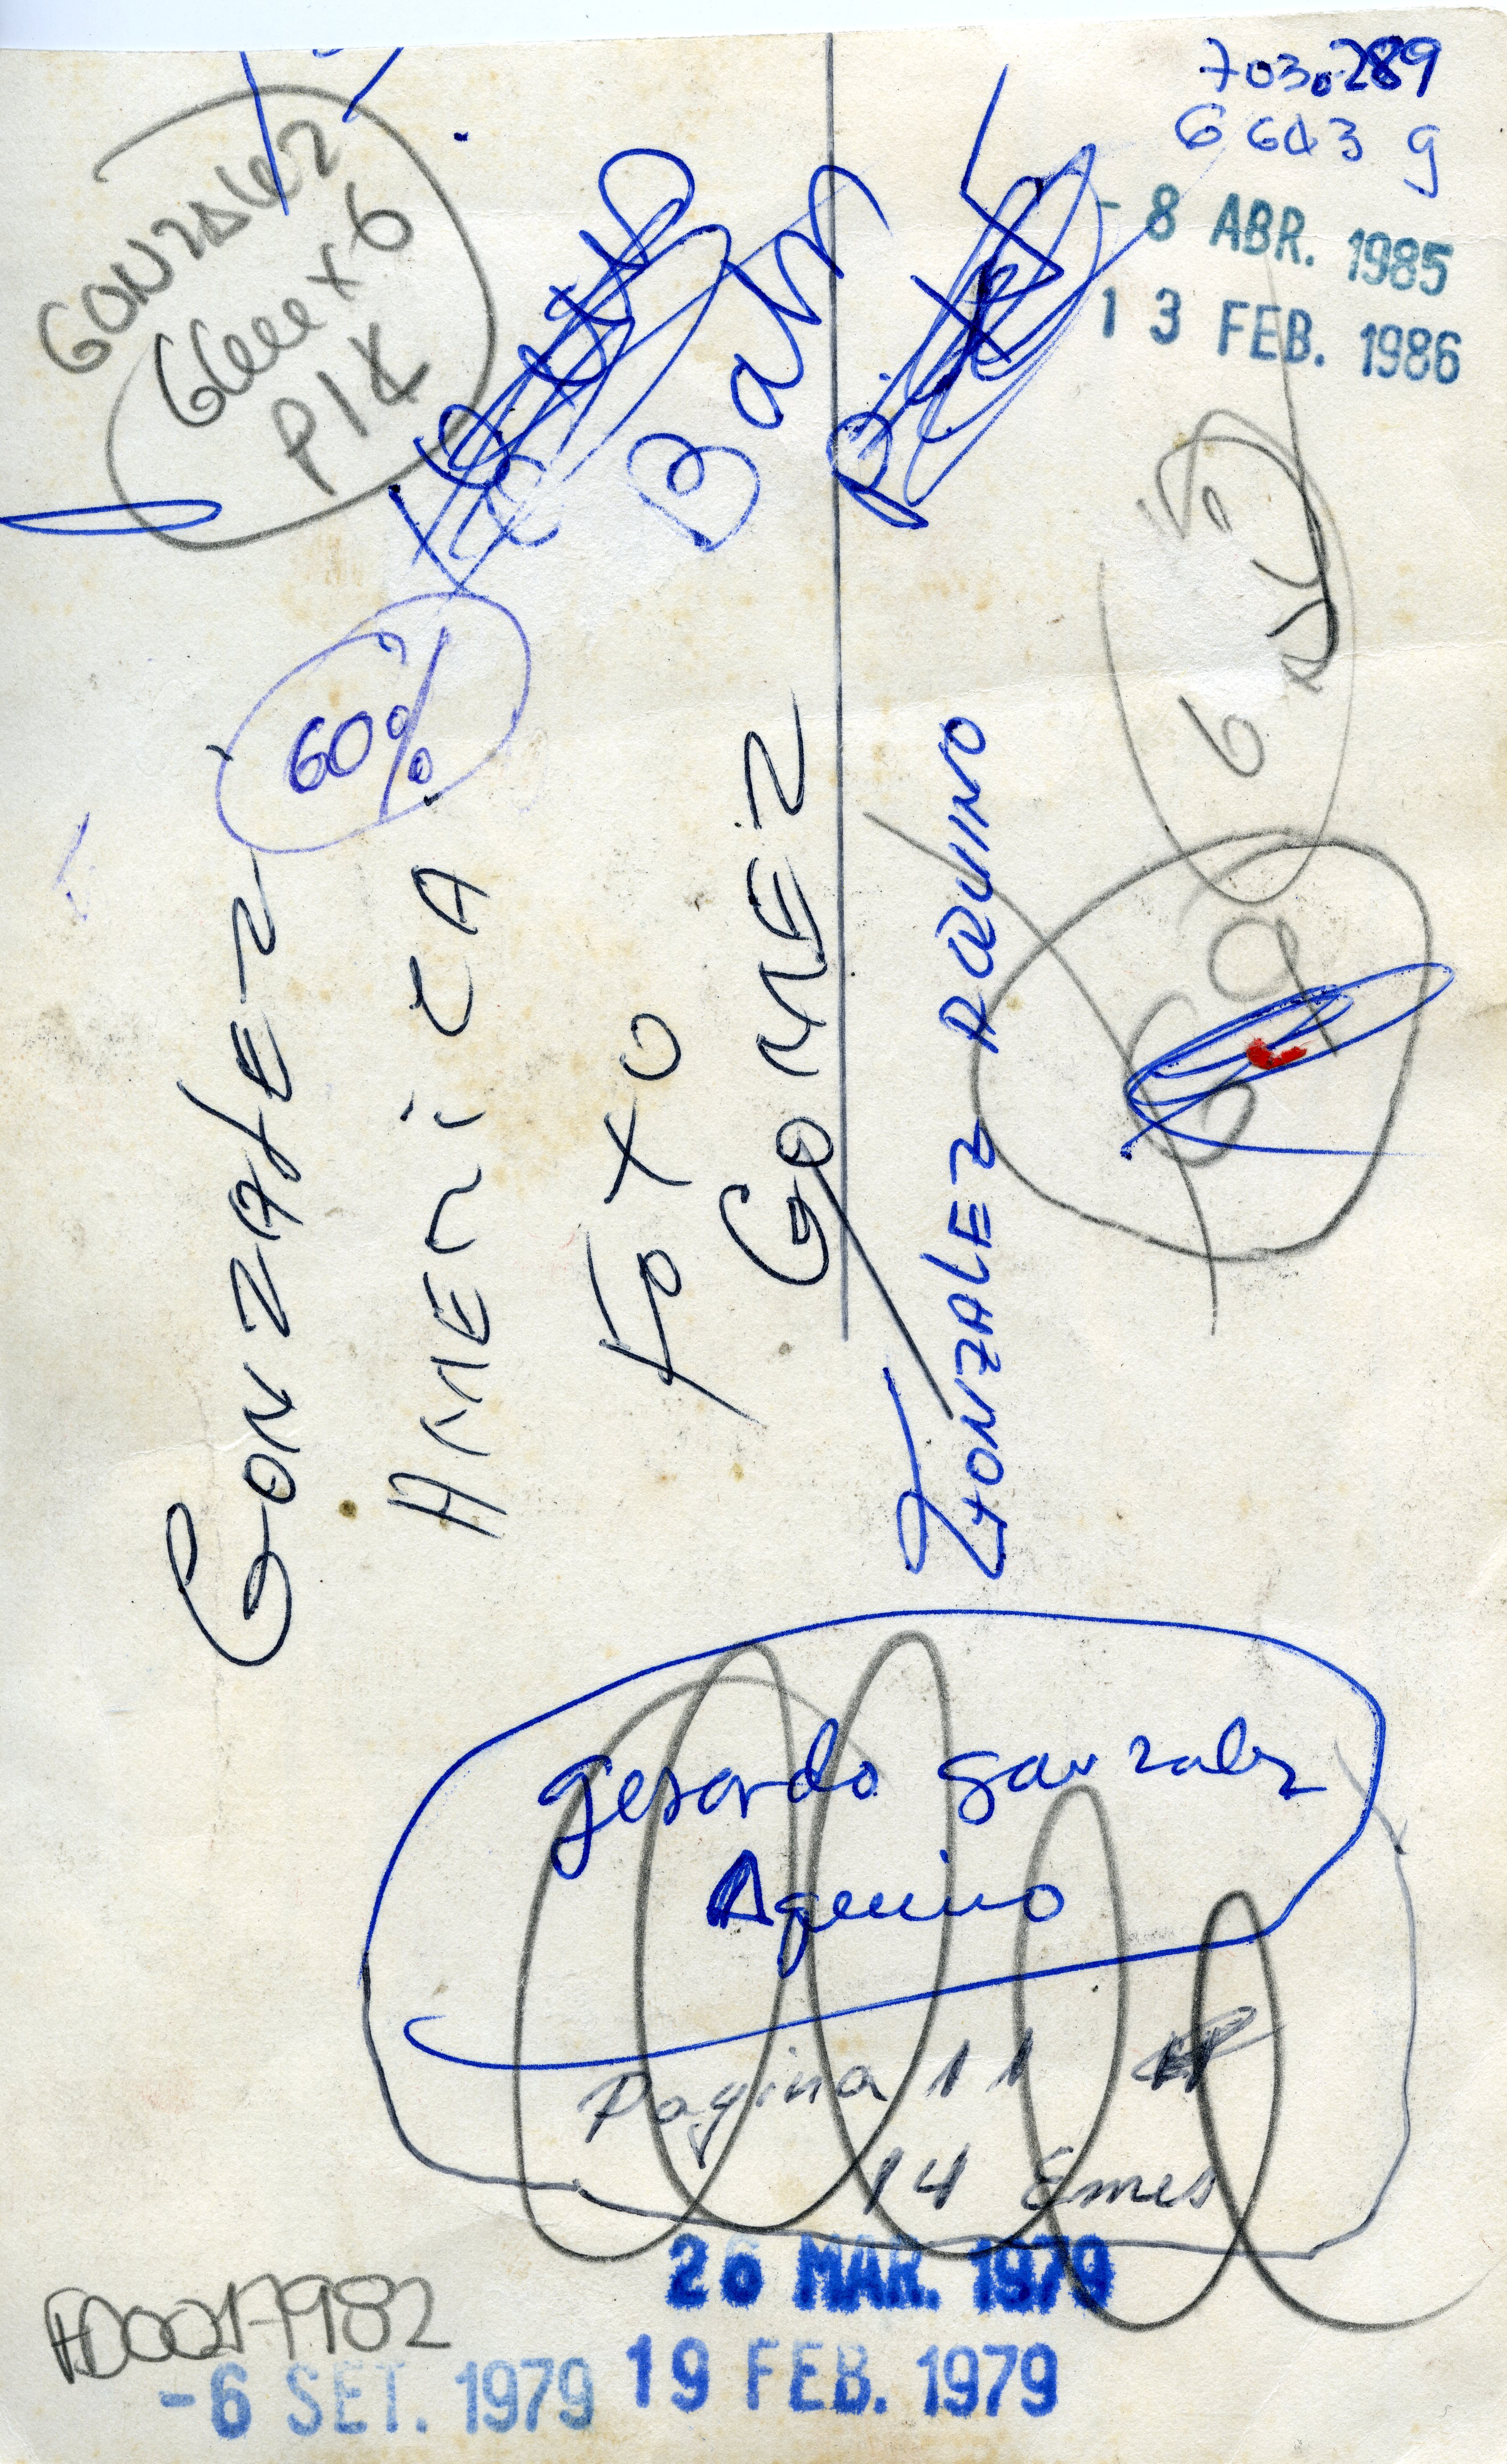 7030289
6643 g
- 8 ABR. 1985
1 3 FEB. 1986
GONZALEZ
Bar
60%
GONZALEZ
AMERiCA
FOTO
GOMEZ
GONZALEZ AQUINO
6
69
gerardo gonzalez
Aquino
Pagina 11
14 Ems
26 MAR. 1979
19 FEB. 1979
- 6 SET. 1979